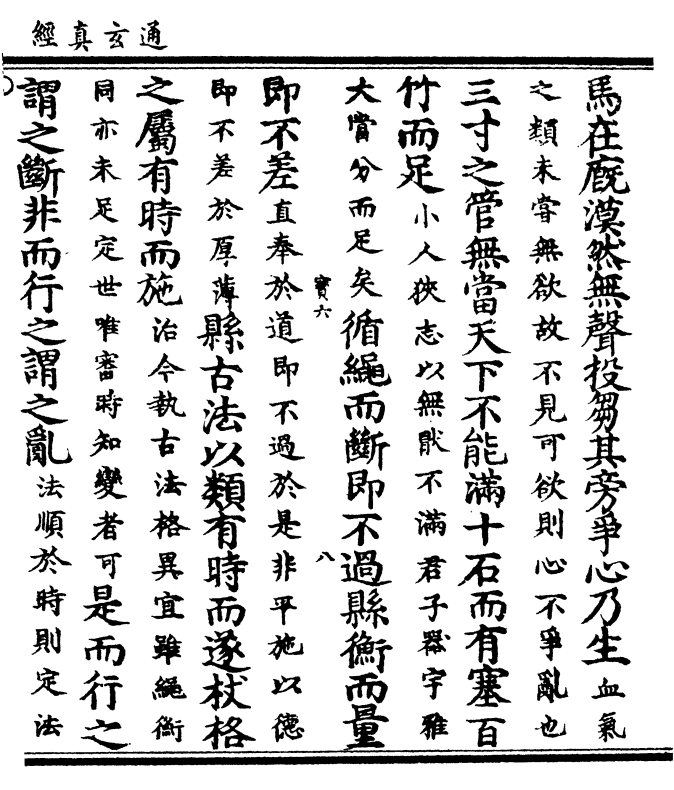 通玄真經
馬在廐漠然無聲投芻其旁爭心乃生血氣
之類未甞無欲故不見可欲則心不爭亂也
三寸之管無當天下不能滿十石而有塞百
竹而足小人狹志以無猒不滿君子器宇雅
大甞分而足矣循繩而斷即不過縣衡而量
即不差直奉於道即不過於是非平施以德
寳六
八
即不差於厚薄縣古法以類有時而遂杖格
之屬有時而施治今執古法格異宜雖繩衡
同亦未足定世唯審時知變者可是而行之
謂之斷非而行之謂之亂法順於時則定法